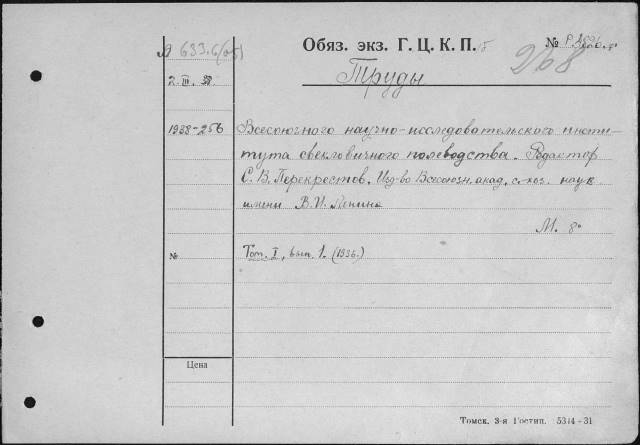 633.6(05) Обяз. экз. Г. Ц. К. П. №
268
2.III.38. Труды
1938-256 Всесоюзного научно-исследовательского инсти-
тута свекловичного полеводства. Редактор
С. В. Перекрестов. Изд-во Всесоюзн. акад. с.-хоз. наук
имени В. И. Ленина
М. 8°
№ Том. I, вып. 1. (1936.)
Цена
Томск. 3-я Гостип. 5314-31